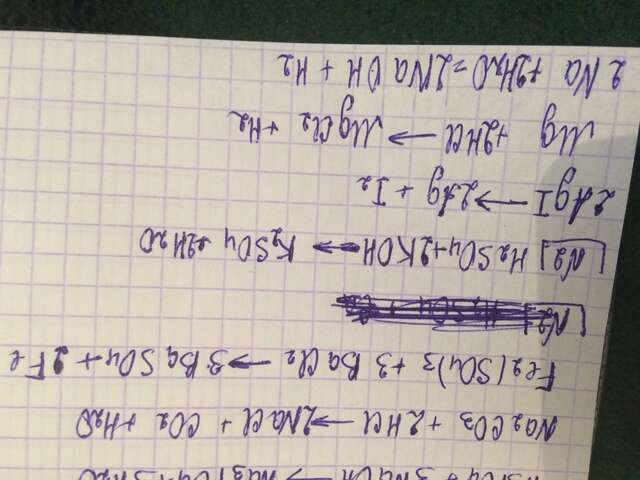 Na2CO3 + 2HCl → 2NaCl + CO2 + H2O
Fe2(SO4)3 + 3 BaCl2 → 3 BaSO4 + 2Fe
№2 H2SO4 + 2KOH → K2SO4 + 2H2O
2AgI → 2Ag + I2
Mg + 2HCl → MgCl2 + H2
2 Na + 2H2O = 2NaOH + H2